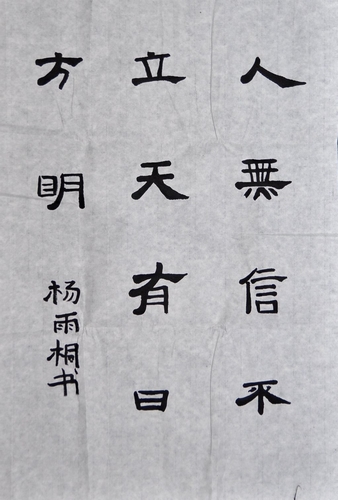 人無信不
立天有日
方明
杨雨桐书